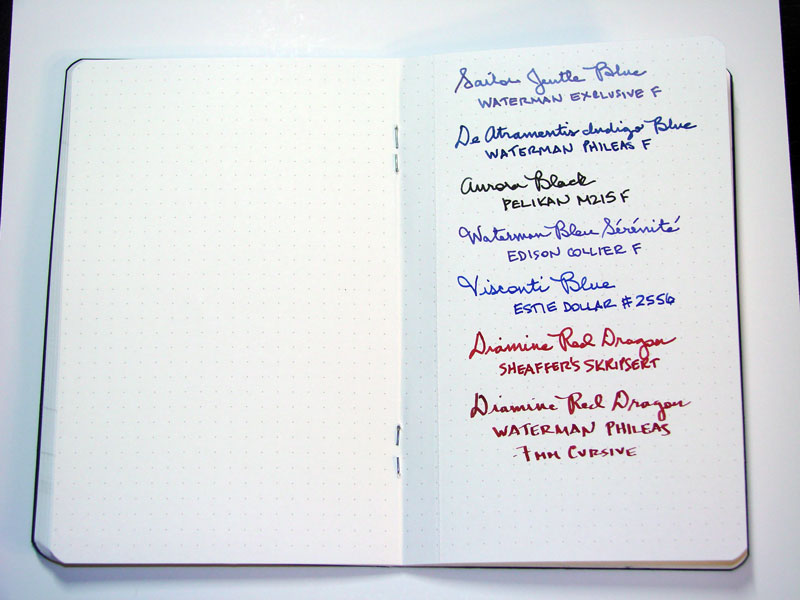 Sailor Jentle Blue
WATERMAN EXCLUSIVE F
De Atramentis Indigo Blue
WATERMAN PHILEAS F
Aurora Black
PELIKAN M215 F
Waterman Bleu Sérénité
EDISON COLLIER F
Visconti Blue
ESTIE DOLLAR #2556
Diamine Red Dragon
SHEAFFER'S SKRIPSERT
Diamine Red Dragon
WATERMAN PHILEAS
.7MM CURSIVE